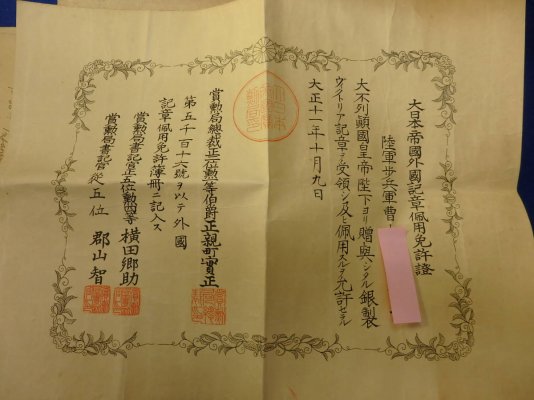 大日本帝國外國記章佩用免許證
陸軍歩兵軍曹
大不列顛國皇帝陛下ヨリ贈與シタル銀製
ヴイクトリア記章ヲ受領シ及ヒ佩用スルヲ允許セラル
大正十一年十月九日
賞勲局總裁正二位勲一等伯爵正親町實正
第五千百十六號ヲ以テ外國
記章佩用免許簿冊ニ記入ス
賞勲局書記官正五位勲四等 横田郷助
賞勲局書記官従五位 郡山智